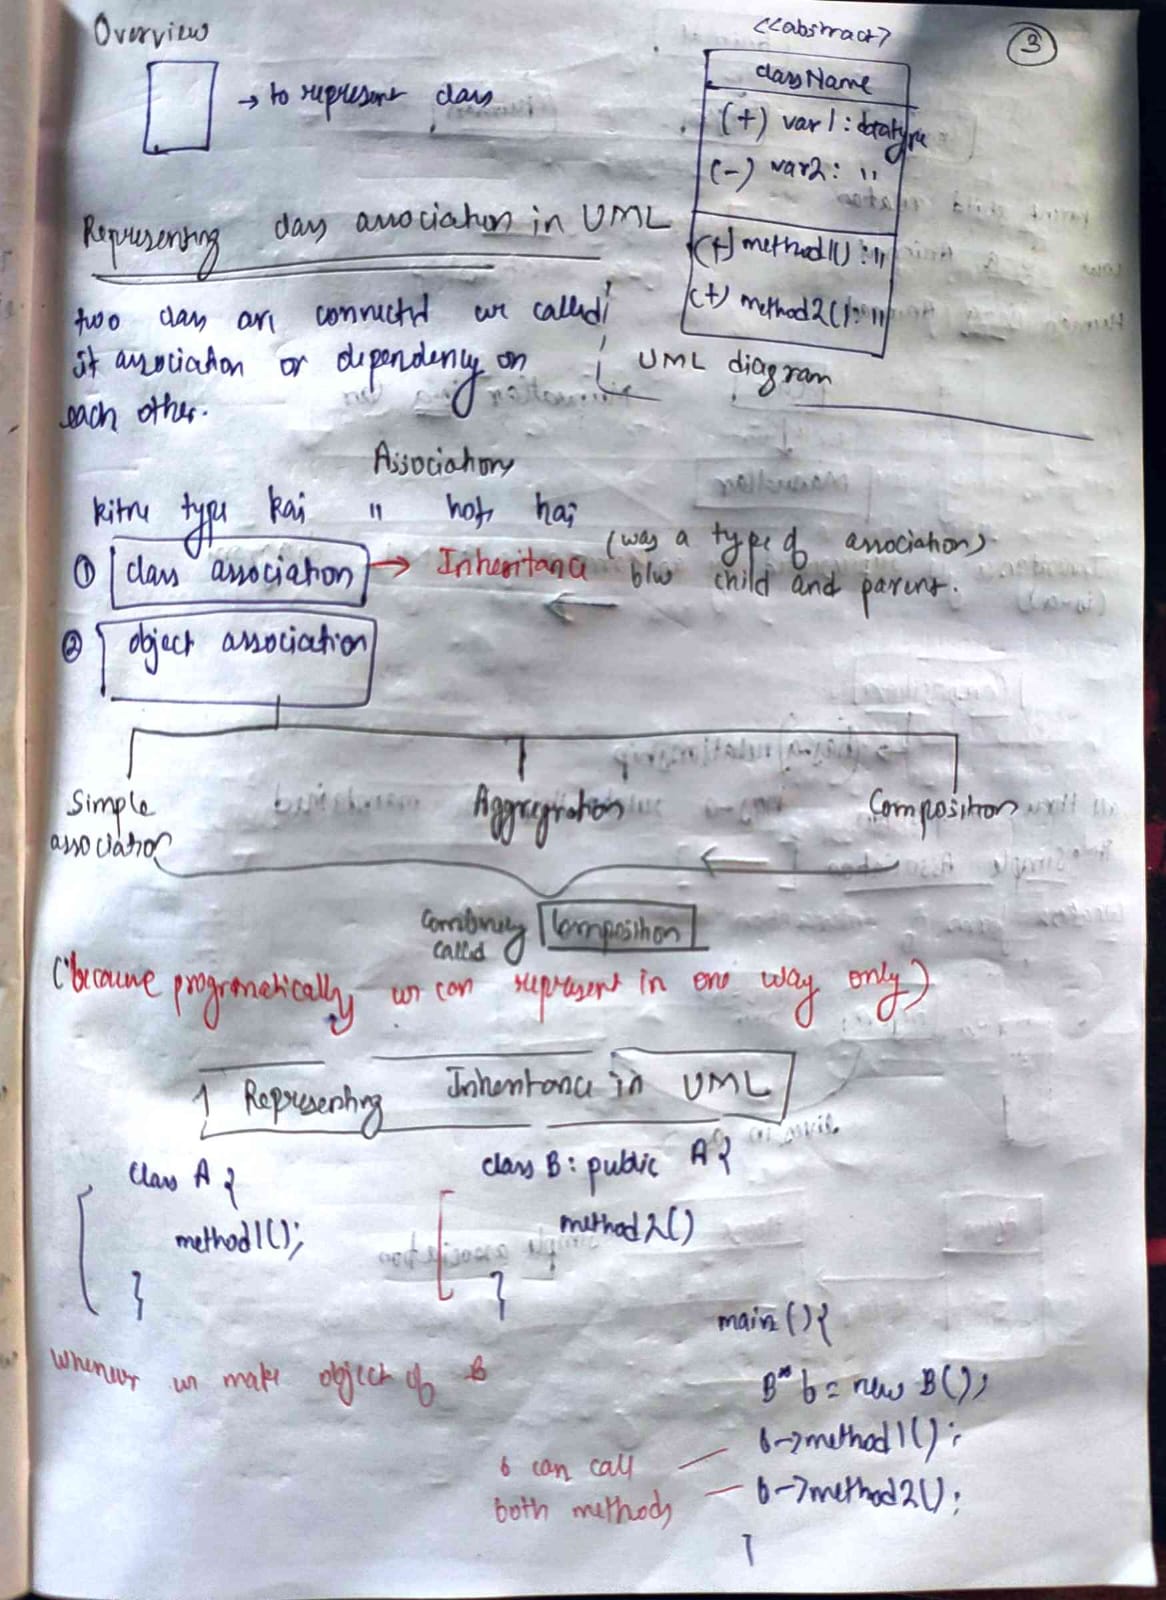 Overview
③
→ to represent class
<<abstract>>
className
(+) var1 : datatype
(-) var2 : "
(+) method1() : "
(+) method2() : "
UML diagram
Representing class association in UML
two class are connected we called
it association or dependency on
each other.
Associations
kitne type kai " hote hai
① class association → Inheritance (was a type of association)
b/w child and parent.
② object association
Simple
association
Aggregration
Composition
combinely
called
Composition
(because programatically we can represent in one way only)
Representing Inheritance in UML
class A {
method1();
}
class B : public A {
method2()
}
whenever we make object of B
main () {
B* b = new B();
b->method1();
b->method2();
}
b can call
both methods